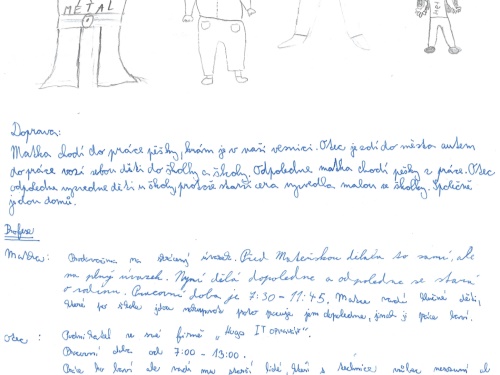 METAL
Doprava:
Matka chodí do práce pěšky, krám je v naší vesnici. Otec jezdí do města autem
do práce vozí sebou děti do školky a školy. Odpoledne matka chodí pěšky z práce. Otec
odpoledne vyzvedne děti u školy, protože starší cera vyzvedla malou ze školky. Společně
jedou domů.
Profese
Matka: Prodavačka na zkrácený úvazek. Před Mateřskou dělala to samí, ale
na plný úvazek. Nyní dělá dopoledne a odpoledne se stará
o rodinu. Pracovní doba je 7:30 - 11:45. Matce vadí hlučné děti,
které po škole jdou nakupovat proto pracuje jen dopoledne, jinak jí práce baví.
Otec: Podnikatel ve své firmě „Hugo IT opravář".
Pracovní doba od 7:00 - 13:00.
Práce ho baví ale vadí mu starší lidé, kteří s technice vůbec nerozumí